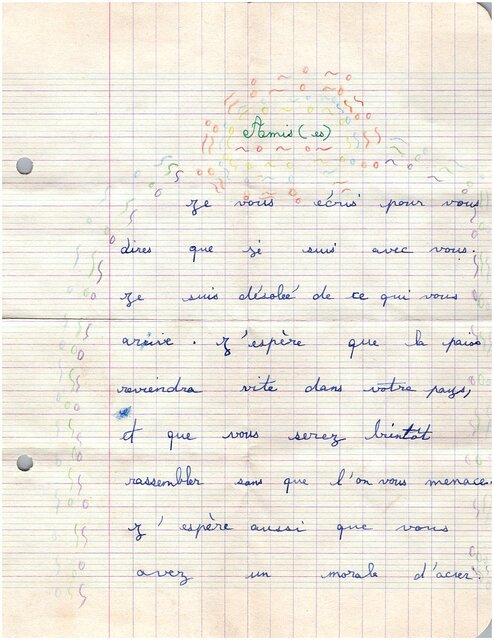 Amis(es)
Je vous écris pour vous
dires que je suis avec vous.
Je suis désolée de ce qui vous
arrive. J'espère que la paix
reviendra vite dans votre pays,
et que vous serez bientôt
rassembler sans que l'on vous menace.
J'espère aussi que vous
avez un morale d'acier.